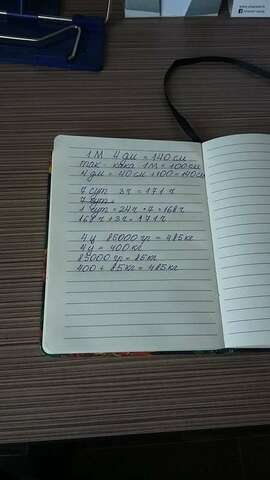 1 м 4 дм = 140 см
так - кака 1 м = 100 см
4 дм = 40 см +100 = 140 см
7 сут 3 ч = 171 ч
7 сут =
1 сут = 24 ч · 7 = 168 ч
168 ч + 3 ч = 171 ч
4 ц 85000 гр = 485 кг
4 ц = 400 кг
85000 гр = 85 кг
400 + 85 кг = 485 кг